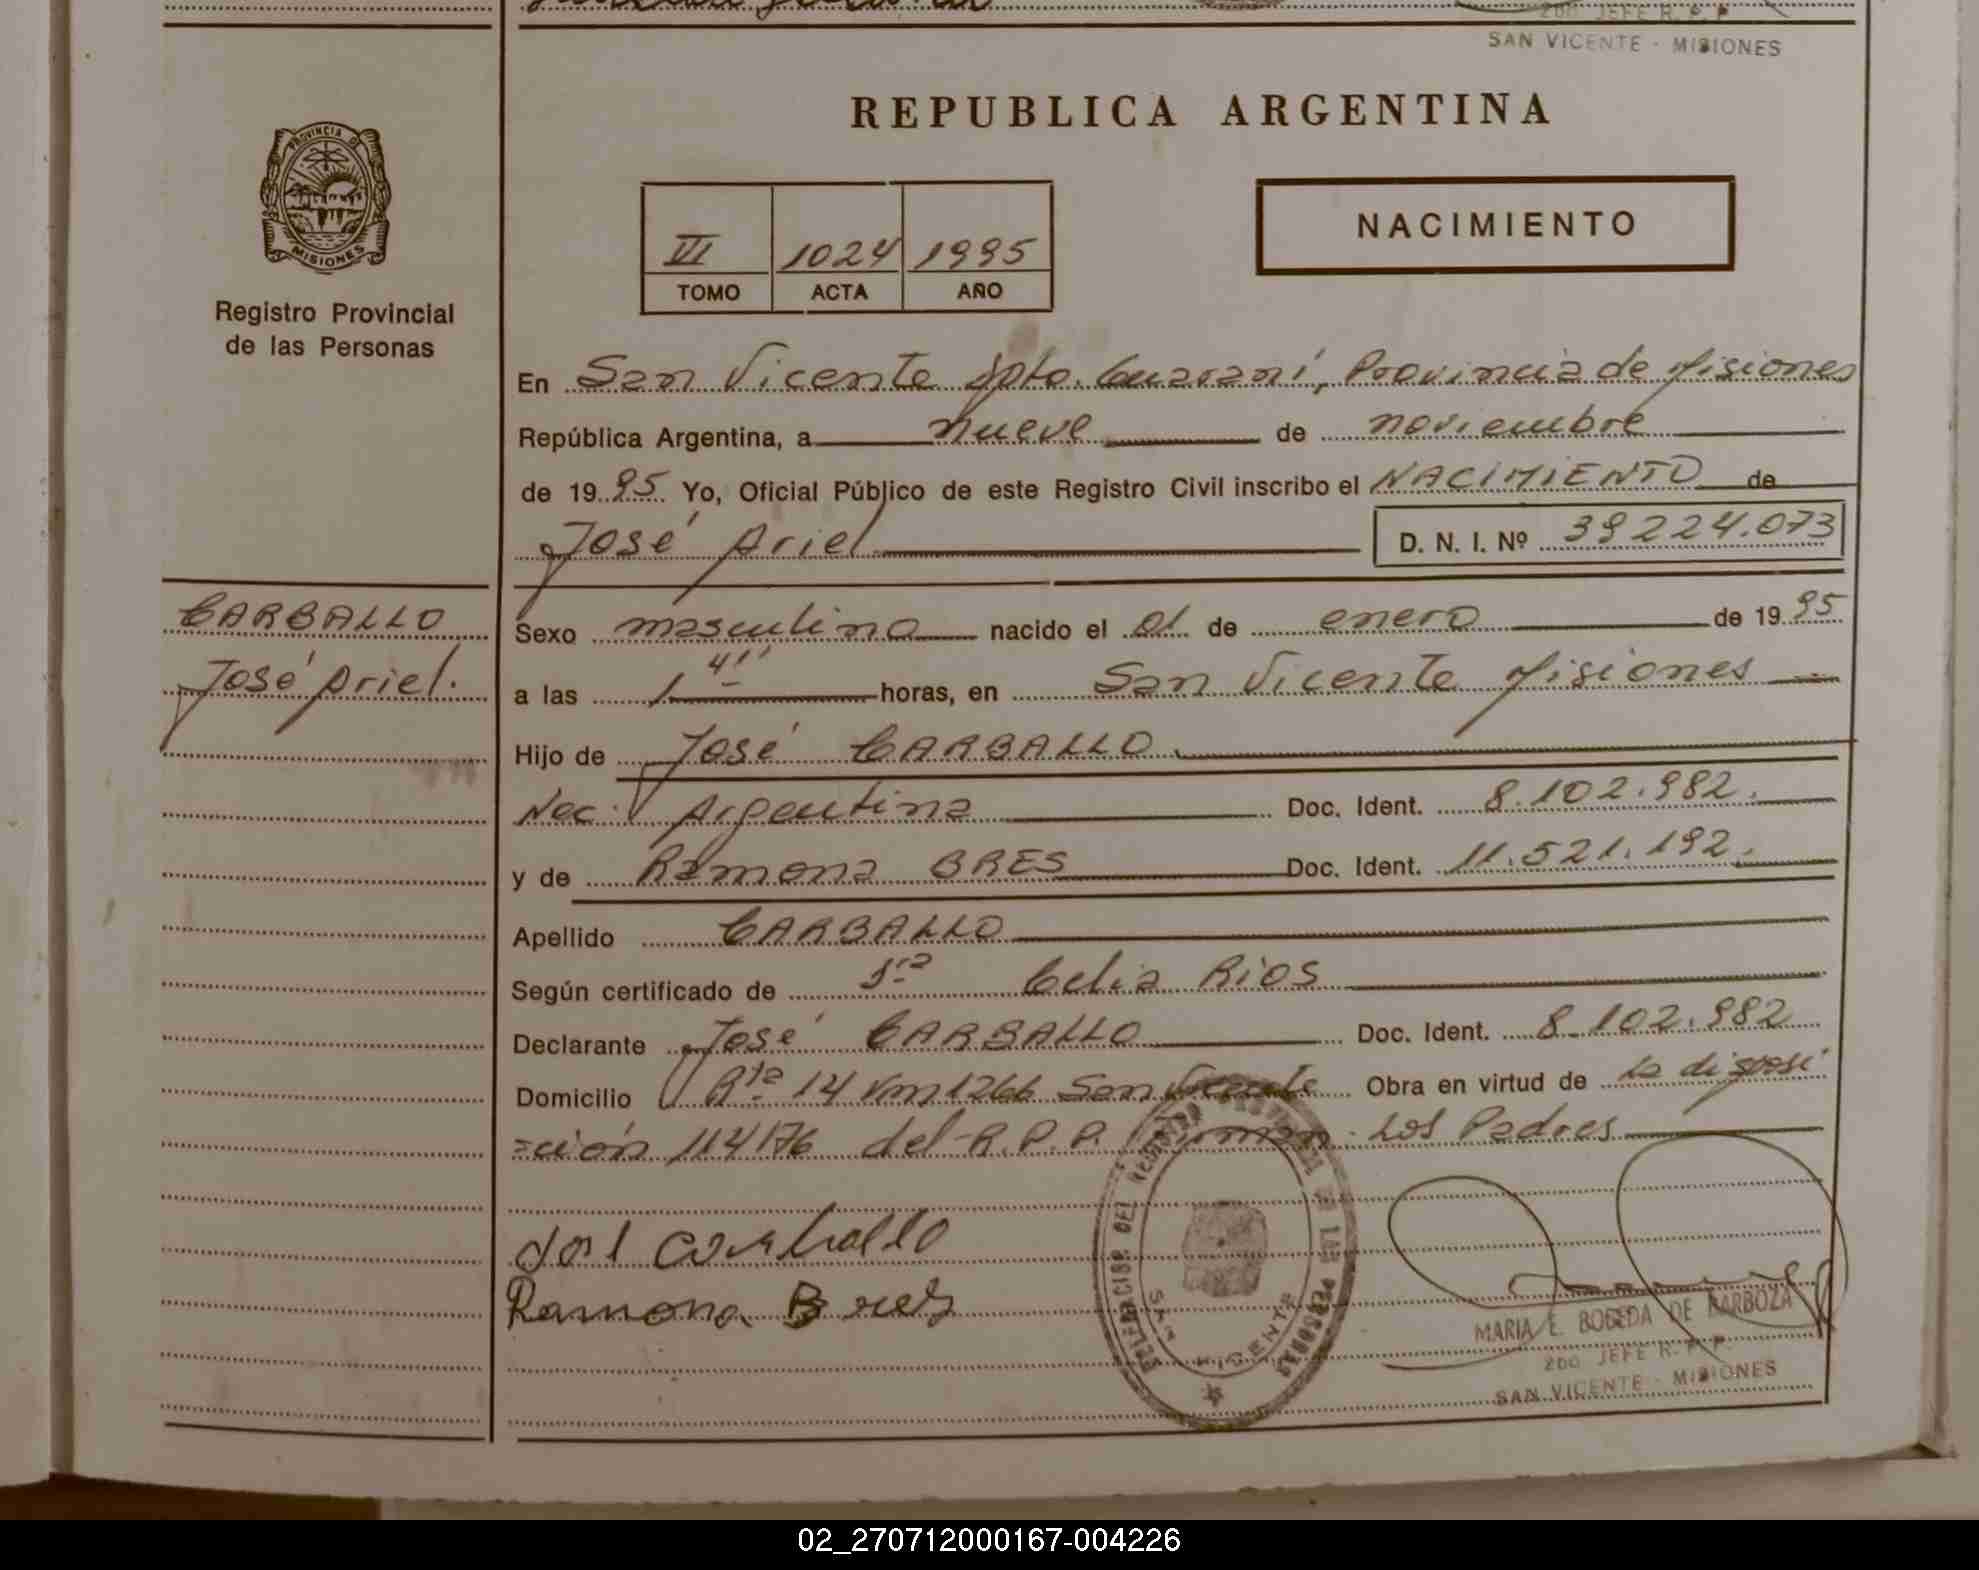 200 JEFE R. P. P
SAN VICENTE - MISIONES
PROVINCIA DE
MISIONES
Registro Provincial
de las Personas
REPUBLICA ARGENTINA
NACIMIENTO
VI 1024 1995
TOMO ACTA AÑO
En San Vicente Dpto. Guaraní, Provincia de Misiones
República Argentina, a nueve de noviembre
de 1995 Yo, Oficial Público de este Registro Civil inscribo el NACIMIENTO de
José Ariel D. N. I. Nº 39224.073
CARBALLO
José Ariel.
Sexo masculino nacido el 01 de enero de 1995
a las 1 4'' horas, en San Vicente Misiones
Hijo de José CARBALLO
Nac. Argentina Doc. Ident. 8.102.982.
y de Ramona BRES Doc. Ident. 11.521.192.
Apellido CARBALLO
Según certificado de Celia Rios
Declarante José CARBALLO Doc. Ident. 8.102.982
Domicilio Rta 14 Km 1266 San Vicente Obra en virtud de la disposi
=ción 114176 del R.P.P. Firman: Los Padres
José Carballo
Ramona Bres
DELEGACION DEL REGISTRO PROVINCIAL DE LAS PERSONAS
SAN VICENTE
MARIA E. BOBEDA DE BARBOZA
2DO JEFE R. P. P.
SAN VICENTE - MISIONES
02_270712000167-004226